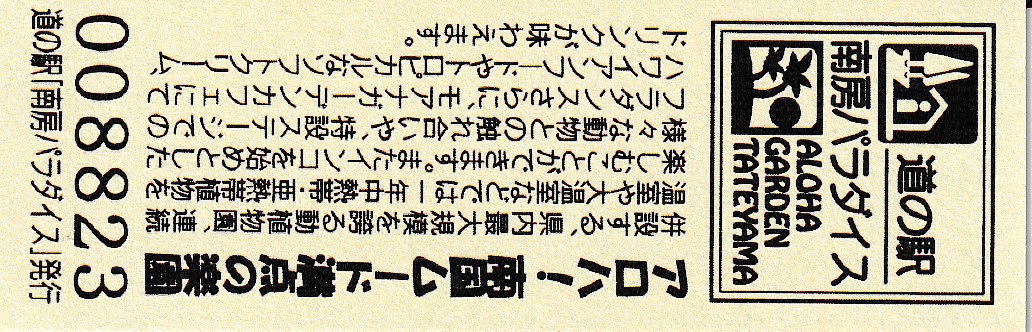 道の駅
南房パラダイス
ALOHA
GARDEN
TATEYAMA
アロハ！南国ムード満点の楽園
併設する、県内最大規模を誇る動植物園、連続
温室や大温室などでは一年中熱帯・亜熱帯植物を
楽しむことができます。またインコを始めとした
様々な動物との触れ合いや、特設ステージでの
フラダンスさらに、モアナガーデンカフェにて
ハワイアンフードやトロピカルなソフトクリーム、
ドリンクが味わえます。
008823
道の駅「南房パラダイス」発行